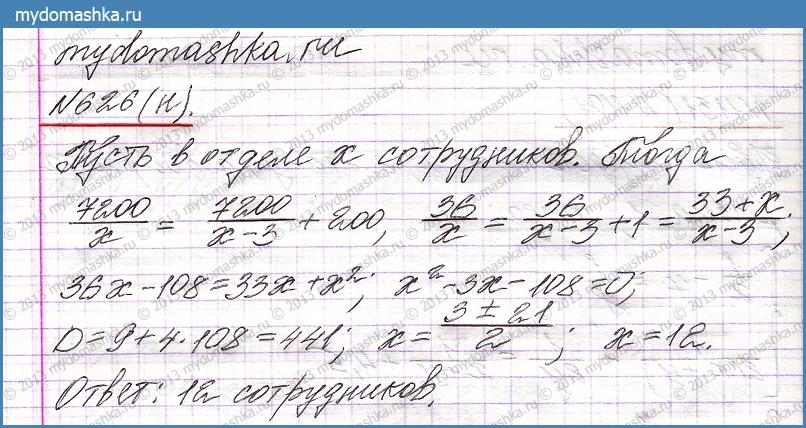 mydomashka.ru
mydomashka.ru
№626(н).
Пусть в отделе x сотрудников. Тогда
7200/x = 7200/(x-3) + 200, 36/x = 36/(x-3) + 1 = (33+x)/(x-3);
36x-108=33x+x²; x²-3x-108=0;
D=9+4·108=441; x=(3±21)/2; x=12.
Ответ: 12 сотрудников.
© 2013 mydomashka.ru